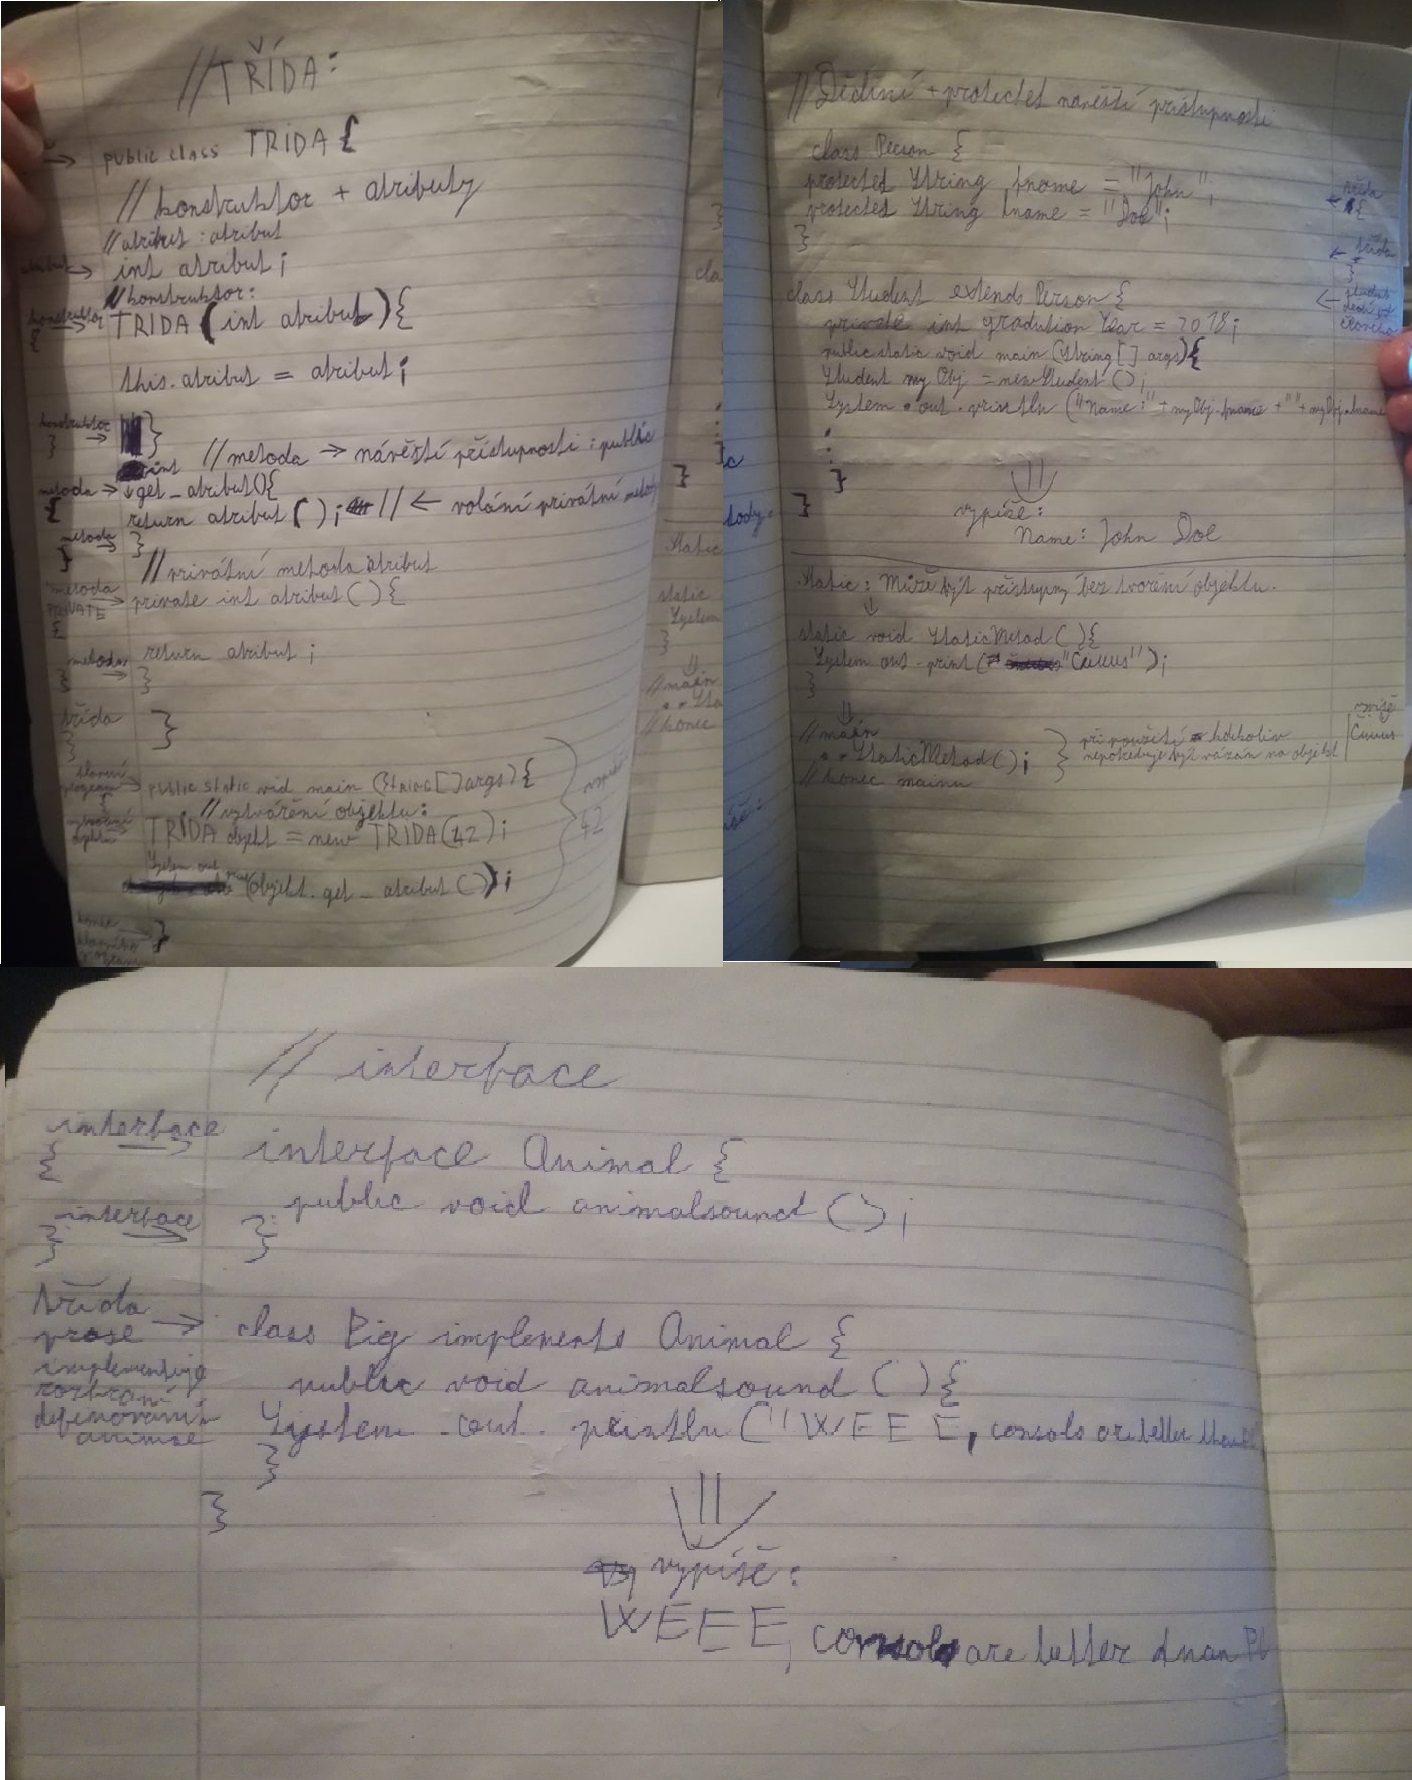 //TŘÍDA:
public class TRIDA {
// konstruktor + atributy
// atribut : atribut
int atribut ;
// konstruktor:
konstruktor
{
TRIDA (int atribut){
this.atribut = atribut ;
konstruktor
}
}
int // metoda → návěští přístupnosti : public
metoda → get_atribut(){
{
return atribut ( ) ; // ← volání privátní metody
metoda
}
}
// privátní metoda atribut
metoda
PRIVATE
{
private int atribut ( ) {
return atribut ;
metoda
}
}
třída
}
}
public static vid main (String[] args) {
// vytváření objektu :
TRIDA objekt = new TRIDA(42) ;
System out
(objekt. get_ atribut ( ) ) ;
vypíše
42
konec
}
// Dědění + protectet navěští přístupnosti
class Person {
protected String fname = "John" ;
protected String lname = "Doe" ;
}
třída
{
třída
}
class Student extends Person {
private int gradution Year = 2018 ;
public static void main (String [ ] args) {
Student my Obj = new Student ( ) ;
System . out . println ("Name:" + myObj.fname + " " + myObj.lname
}
}
vypíše :
Name : John Doe
Static : Může být přístupny bez tvoření objektu.
↓
static void StaticMetod ( ) {
System out . print ( "Cuuus" ) ;
}
// main
. . StaticMetod ( ) ;
// konec mainu
} při použití kdekoliv
nepotřebuje být vázán na objekt
vypíše
Cuuus
// interface
interface
{
interface Animal {
public void animalsound ( ) ;
interface
}
}
třída
prase →
implementuje
rozhraní
definování
animae
class Pig implements Animal {
public void animalsound ( ) {
System . out . println ("WEEE, consols are better than
}
}
vypíše :
WEEE, consols are better than